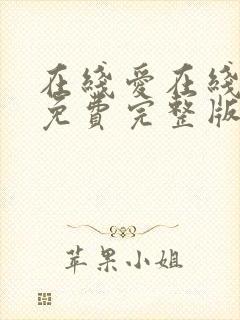 在线爱在线
免费完整版
苹果小姐